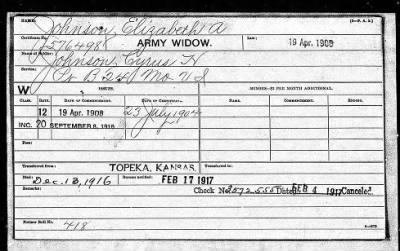 NAME: Johnson, Elizabeth A
Certificate No. 576498 ARMY WIDOW. Law: 19 Apr. 1908
Name of Soldier: Johnson, Cyrus H
Service: Co B 25 Mo U S
W ISSUE. MINORS—$2 PER MONTH ADDITIONAL.
CLASS. RATE. DATE OF COMMENCEMENT. DATE OF CERTIFICATE. NAME. COMMENCEMENT. ENDING.
12 19 Apr. 1908 23 July 1908
INC. 20 SEPTEMBER 8, 1916
Transferred from TOPEKA, KANSAS. Transferred to:
Died Dec. 13, 1916 Bureau notified FEB 17 1917
Remarks: Check No 2572555 Dated FEB 4 1917 Canceled.
Former Roll No. 418